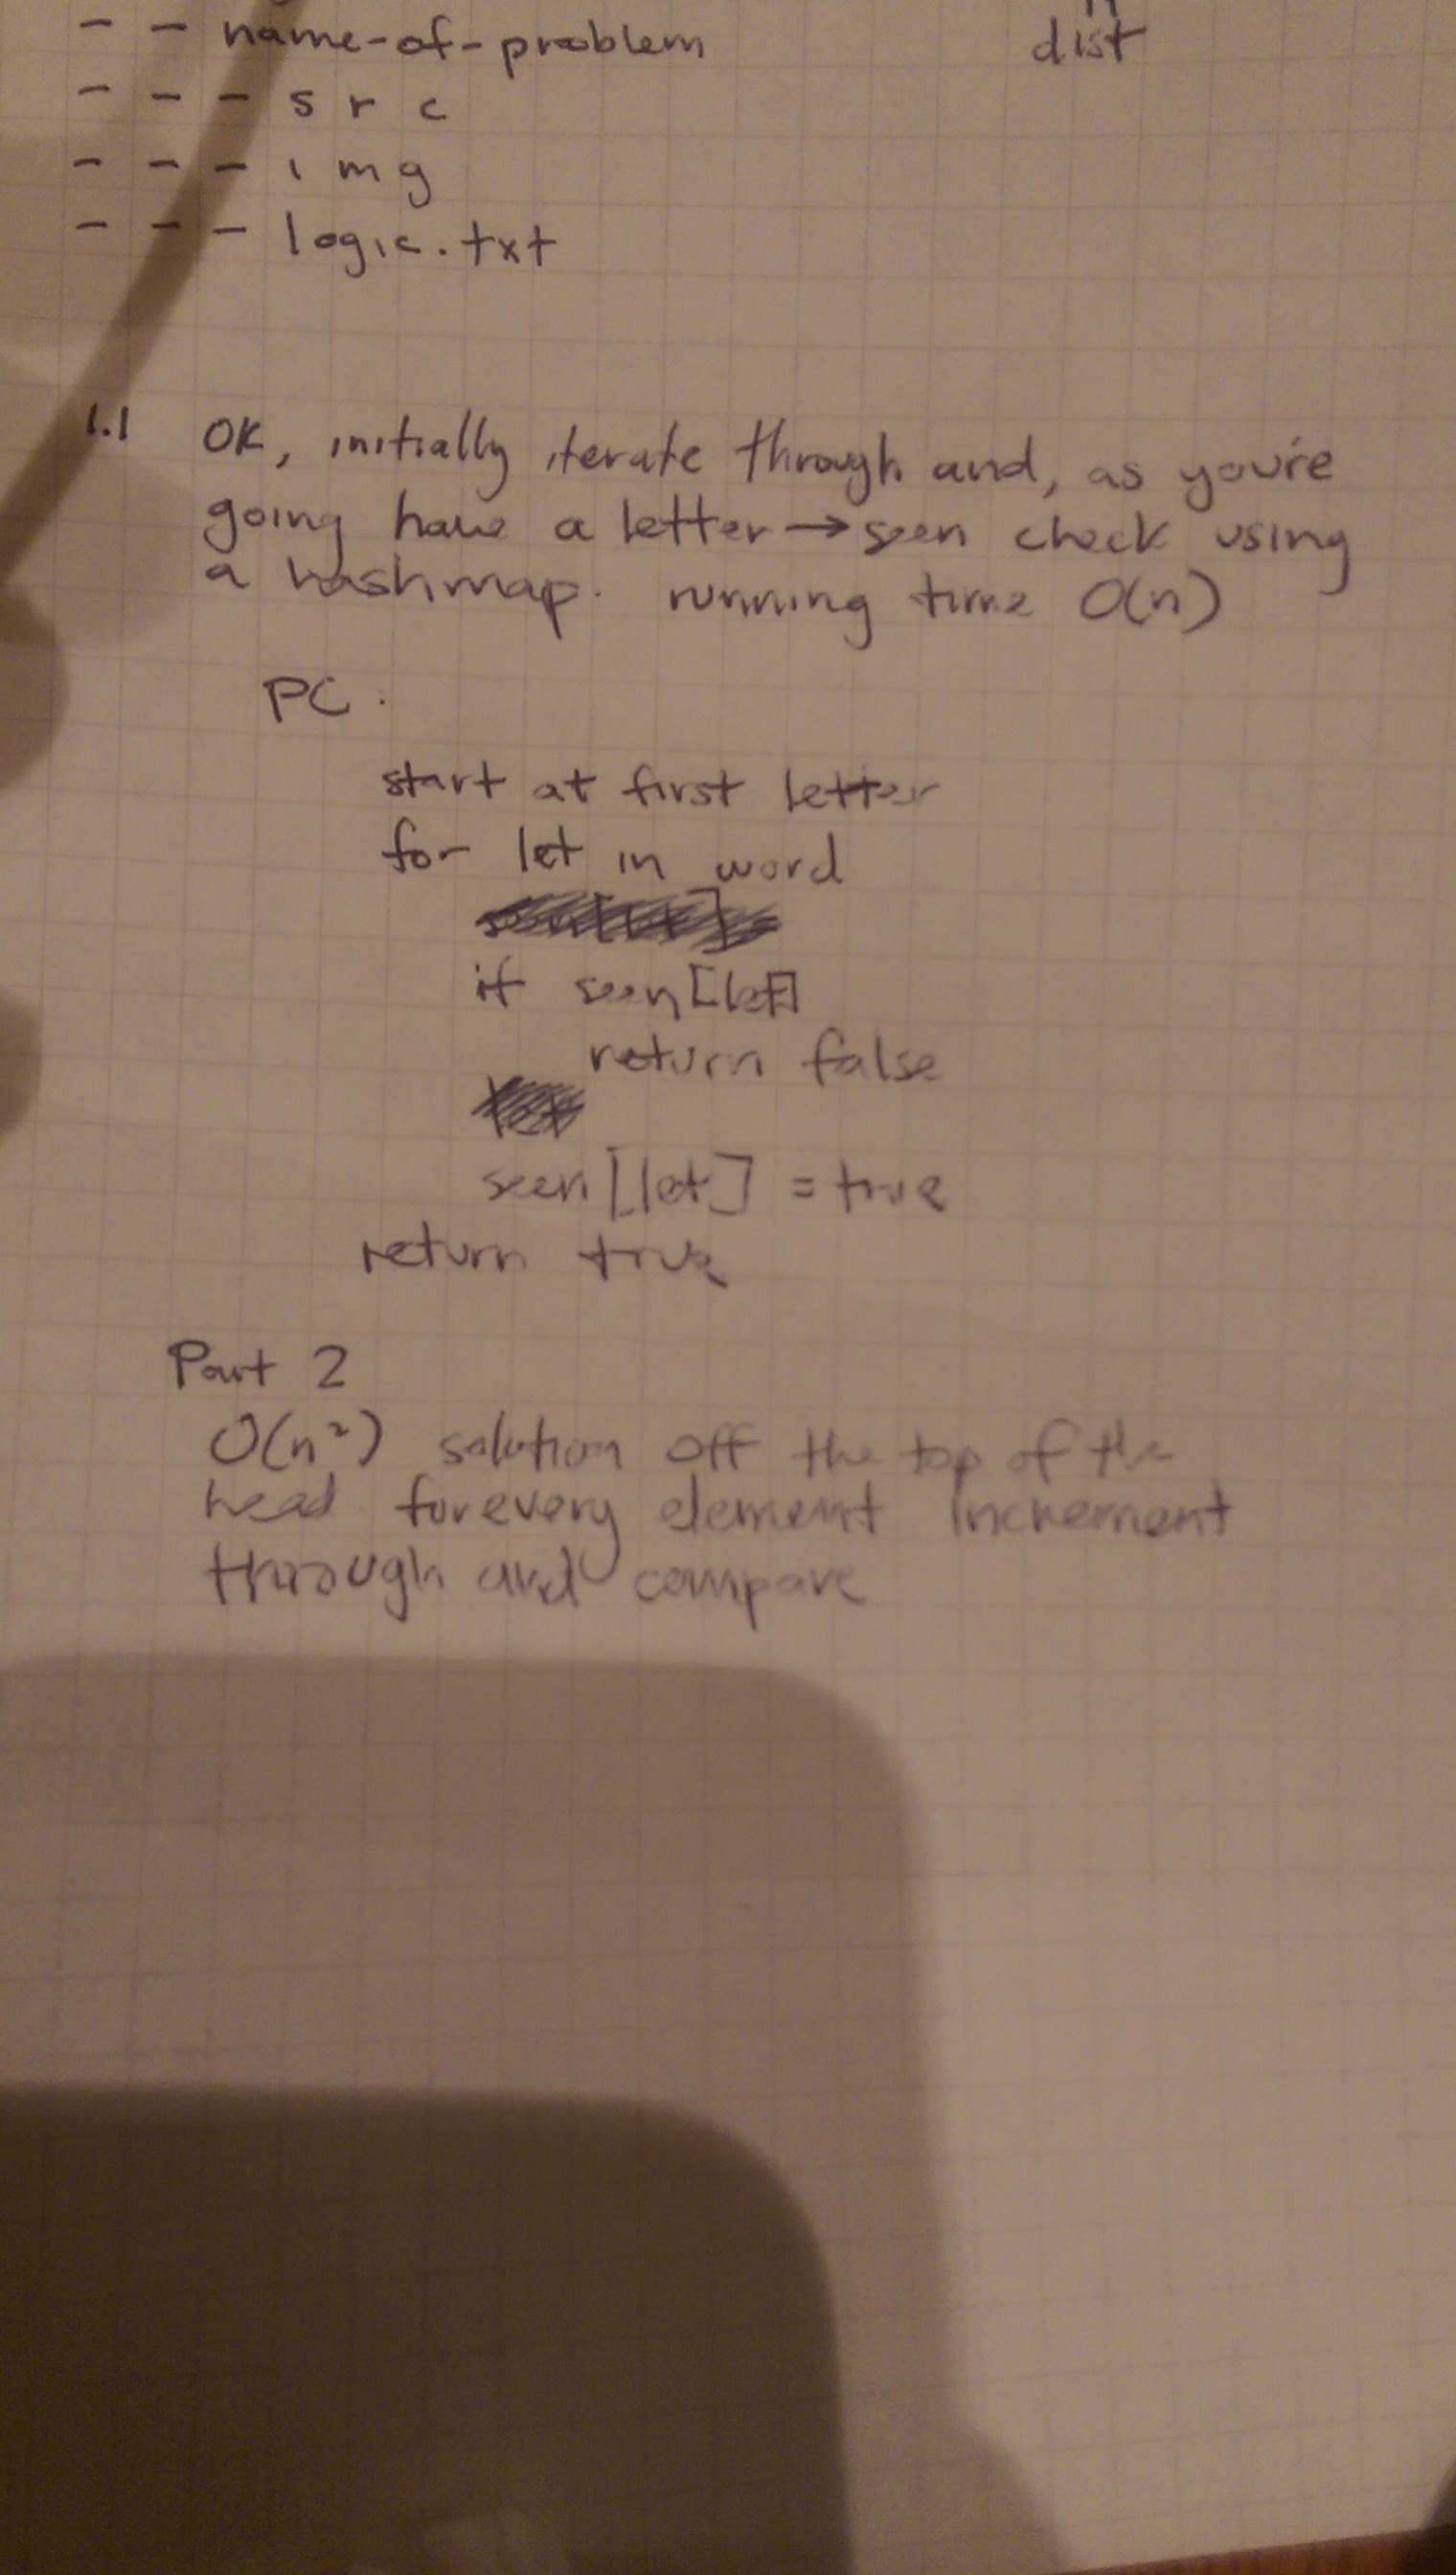 - - name-of-problem
dist
- - - src
- - - img
- - - logic.txt
1.1 OK, initially iterate through and, as you're
going have a letter → seen check using
a hashmap. running time O(n)
PC:
start at first letter
for let in word
if seen[let]
return false
seen[let] = true
return true
Part 2
O(n²) solution off the top of the
head. for every element increment
through and compare